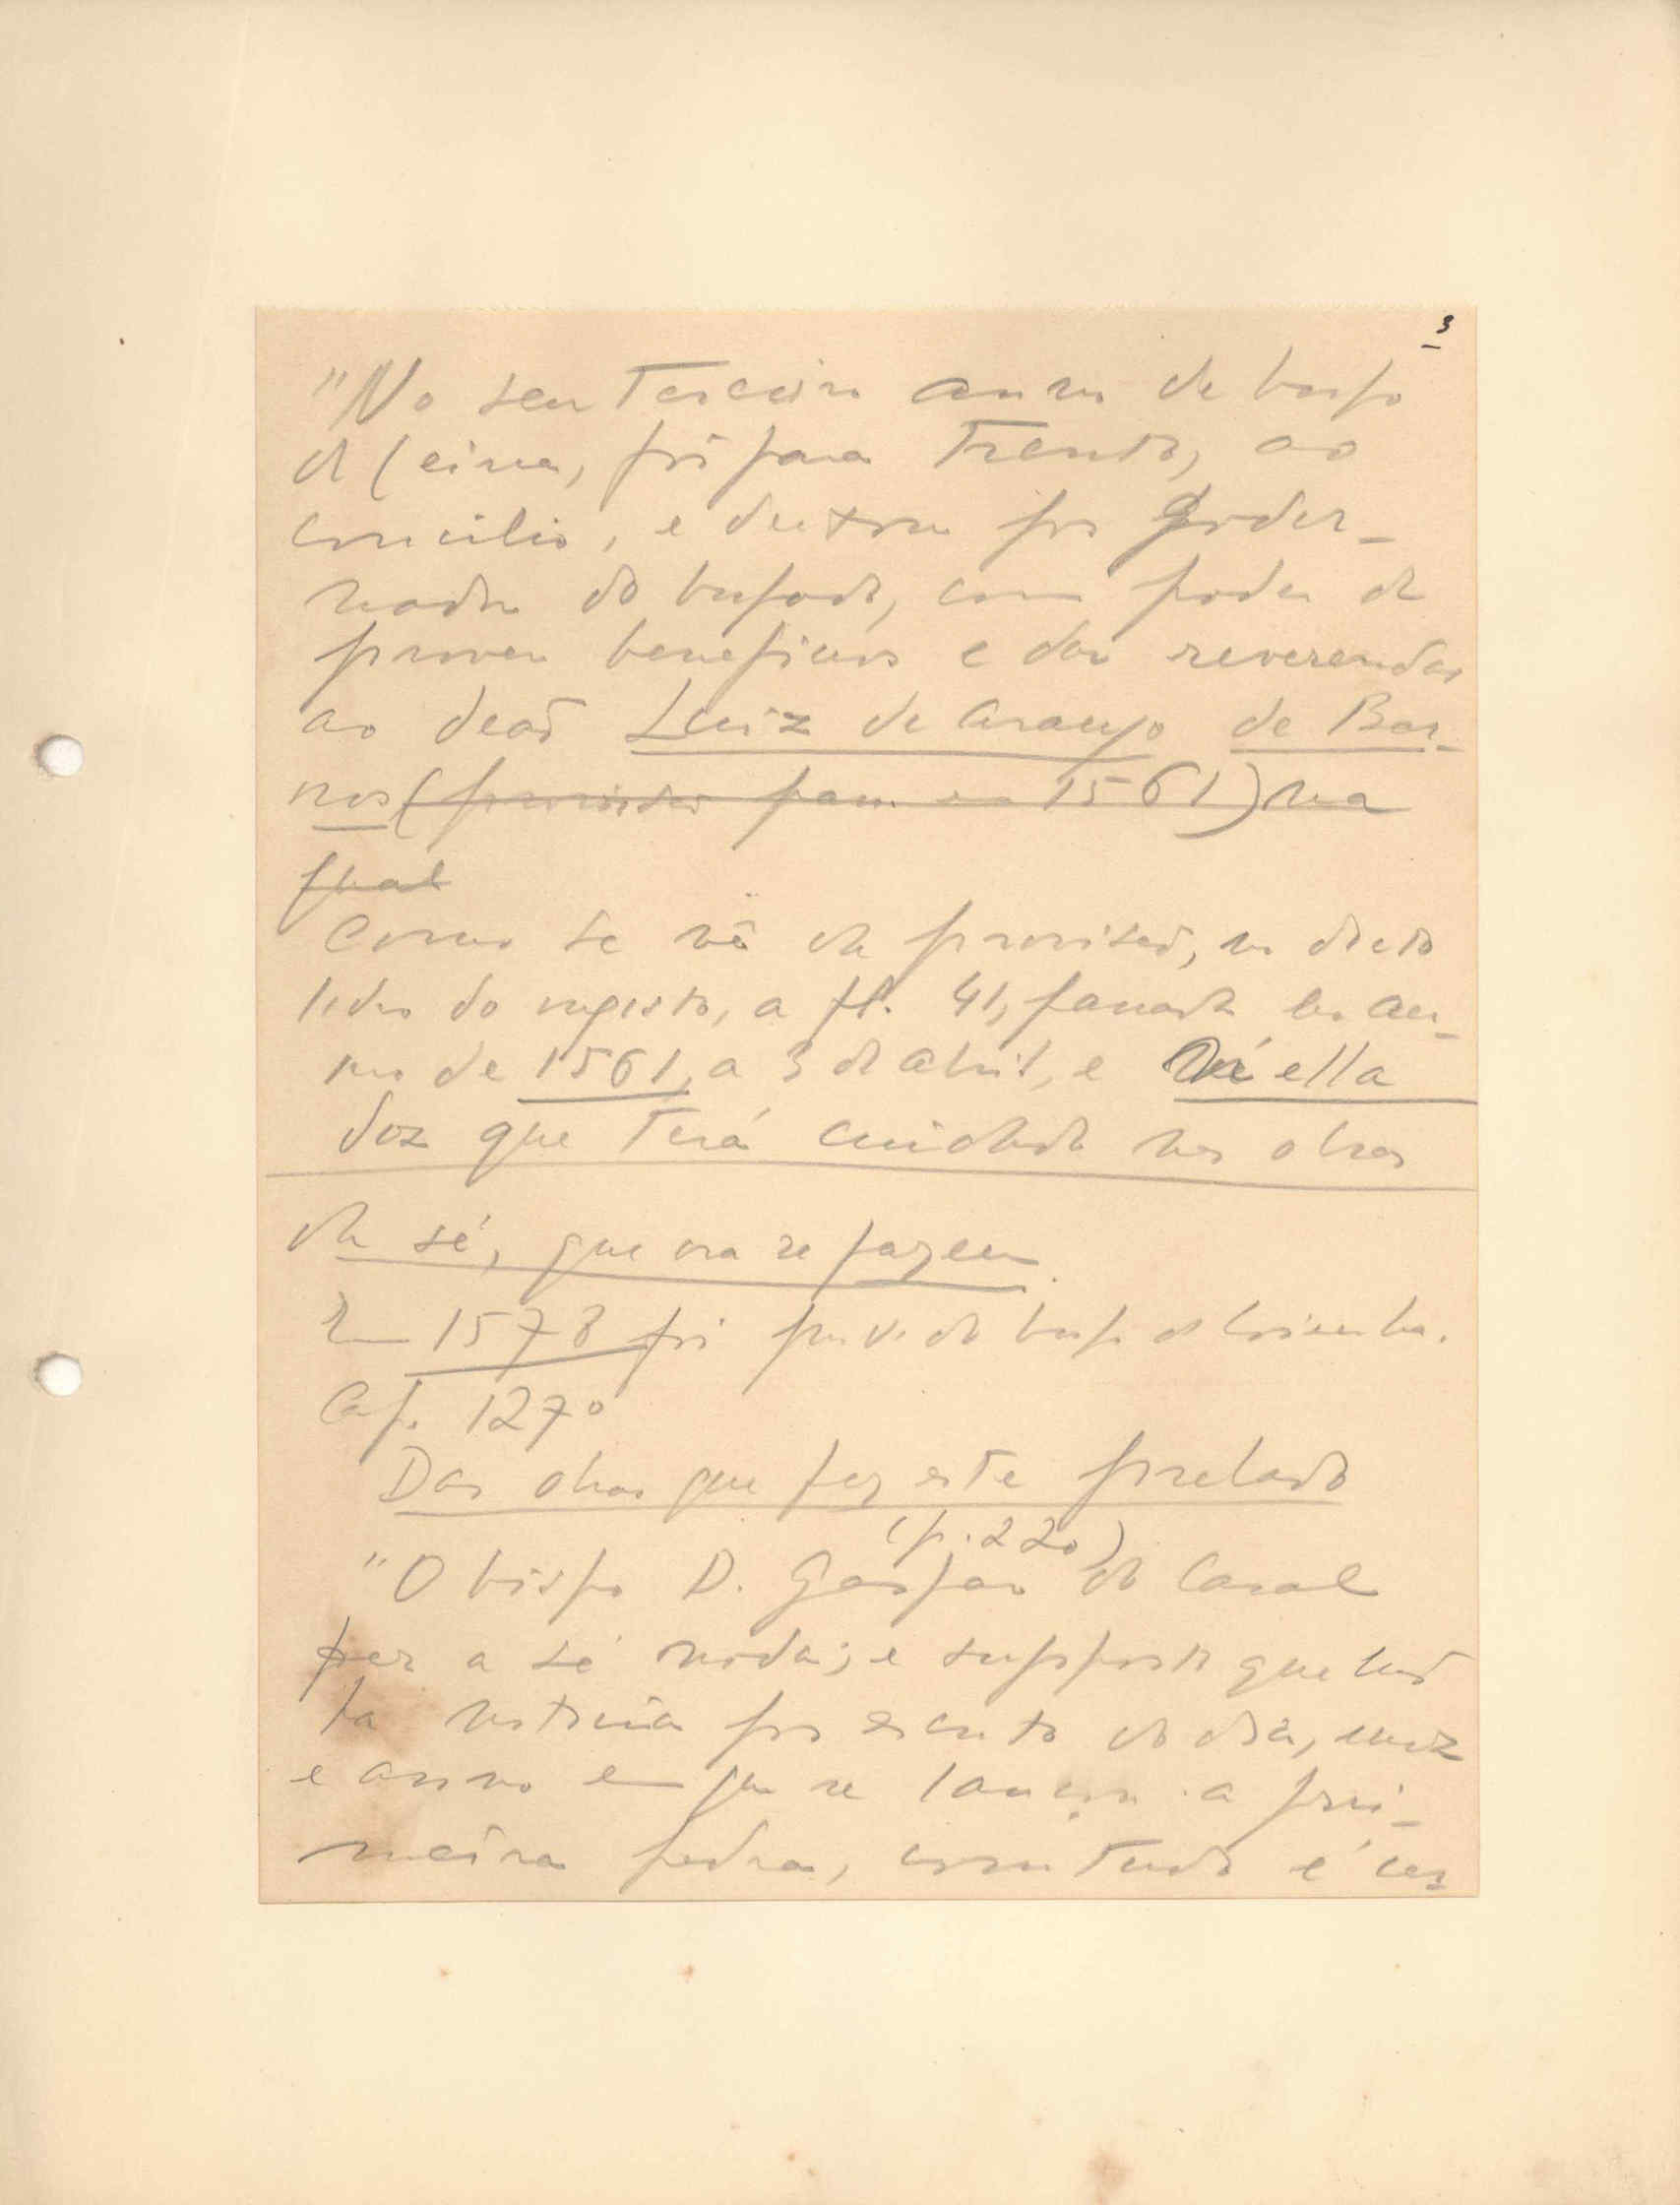 3
"No seu terceiro anno de bispo
de Leiria, foi para Trento, ao
concilio, e deixou por Gover-
nador do bispado, com poder de
prover beneficios e dar reverendas
ao deaõ Luiz de Araujo de Bar-
ros (provisão 1561) na
qual
Como se vê da provisaõ, no dicto
livro do registo, a fl. 41, passada no an-
no de 1561, a 3 de abril, e n'ella
diz que terá cuidado nas obras
da sé, que ora se fazem.
Em 1578 foi provido bispo de Coimbra.
Cap. 127º
Das obras que fez este prelado
(p. 220)
"O bispo D. Gaspar do Casal
fez a sé nova; e supposto que naõ
ha noticia por escrito do dia, mez
e anno em que se lançou a pri-
meira pedra, comtudo é cer-